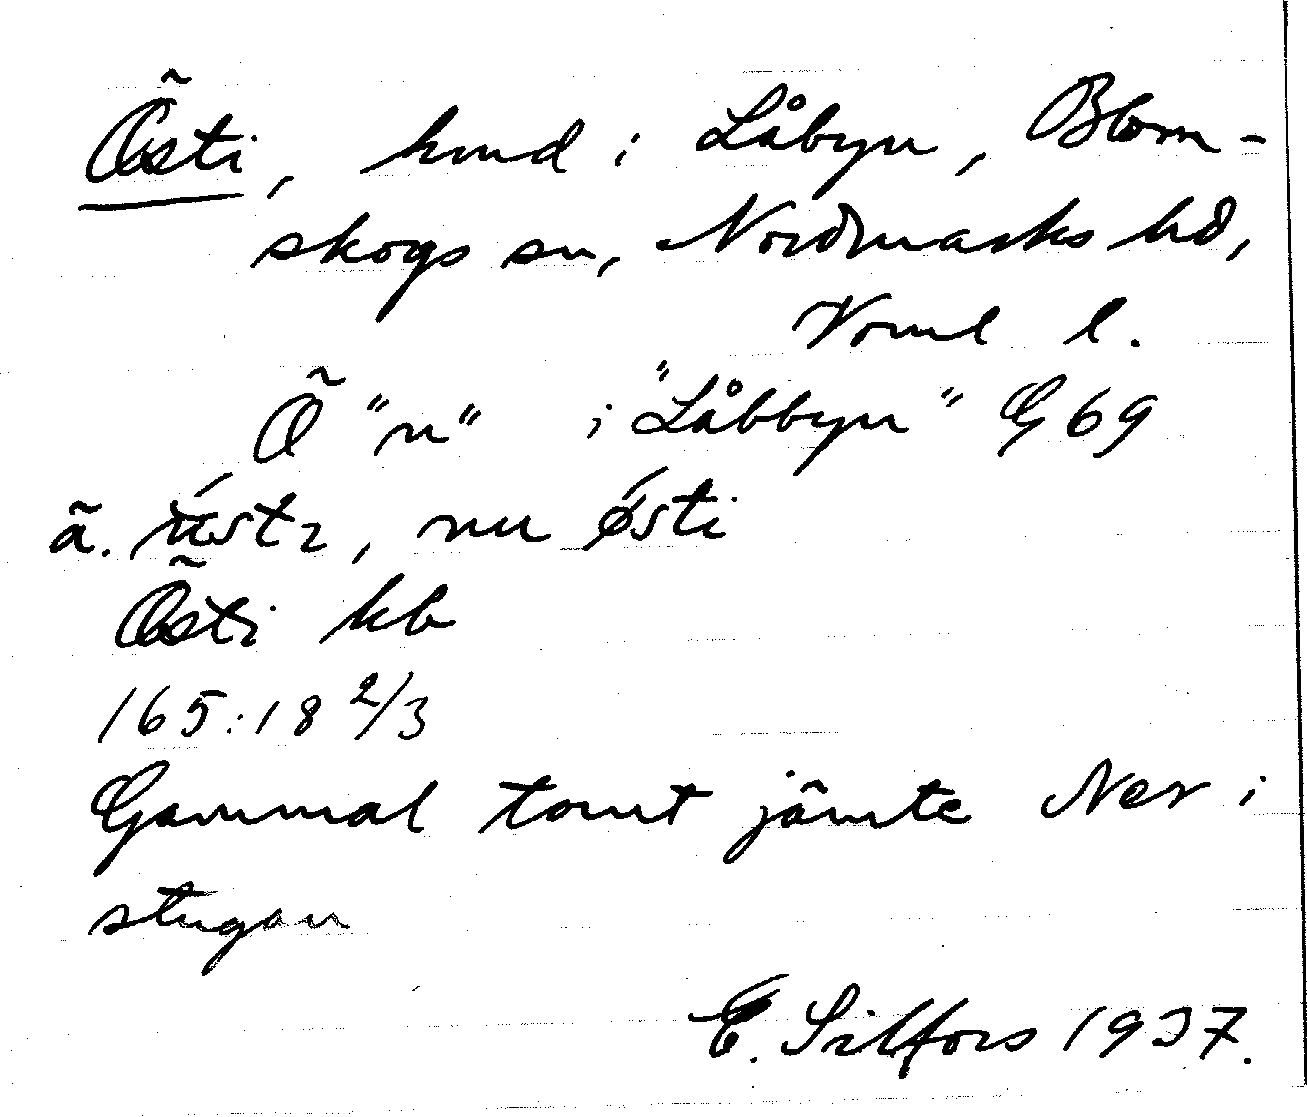 Östi, hmd i Låbyn, Blom-
skogs sn, Nordmarks hd,
Vrml l.
Ö "n" i "Låbbyn" G 69
ä. østɩ, nu østi
Östi kb
165:18 2/3
Gammal tomt jämte Ner i
stugan
E. Silfors 1937.